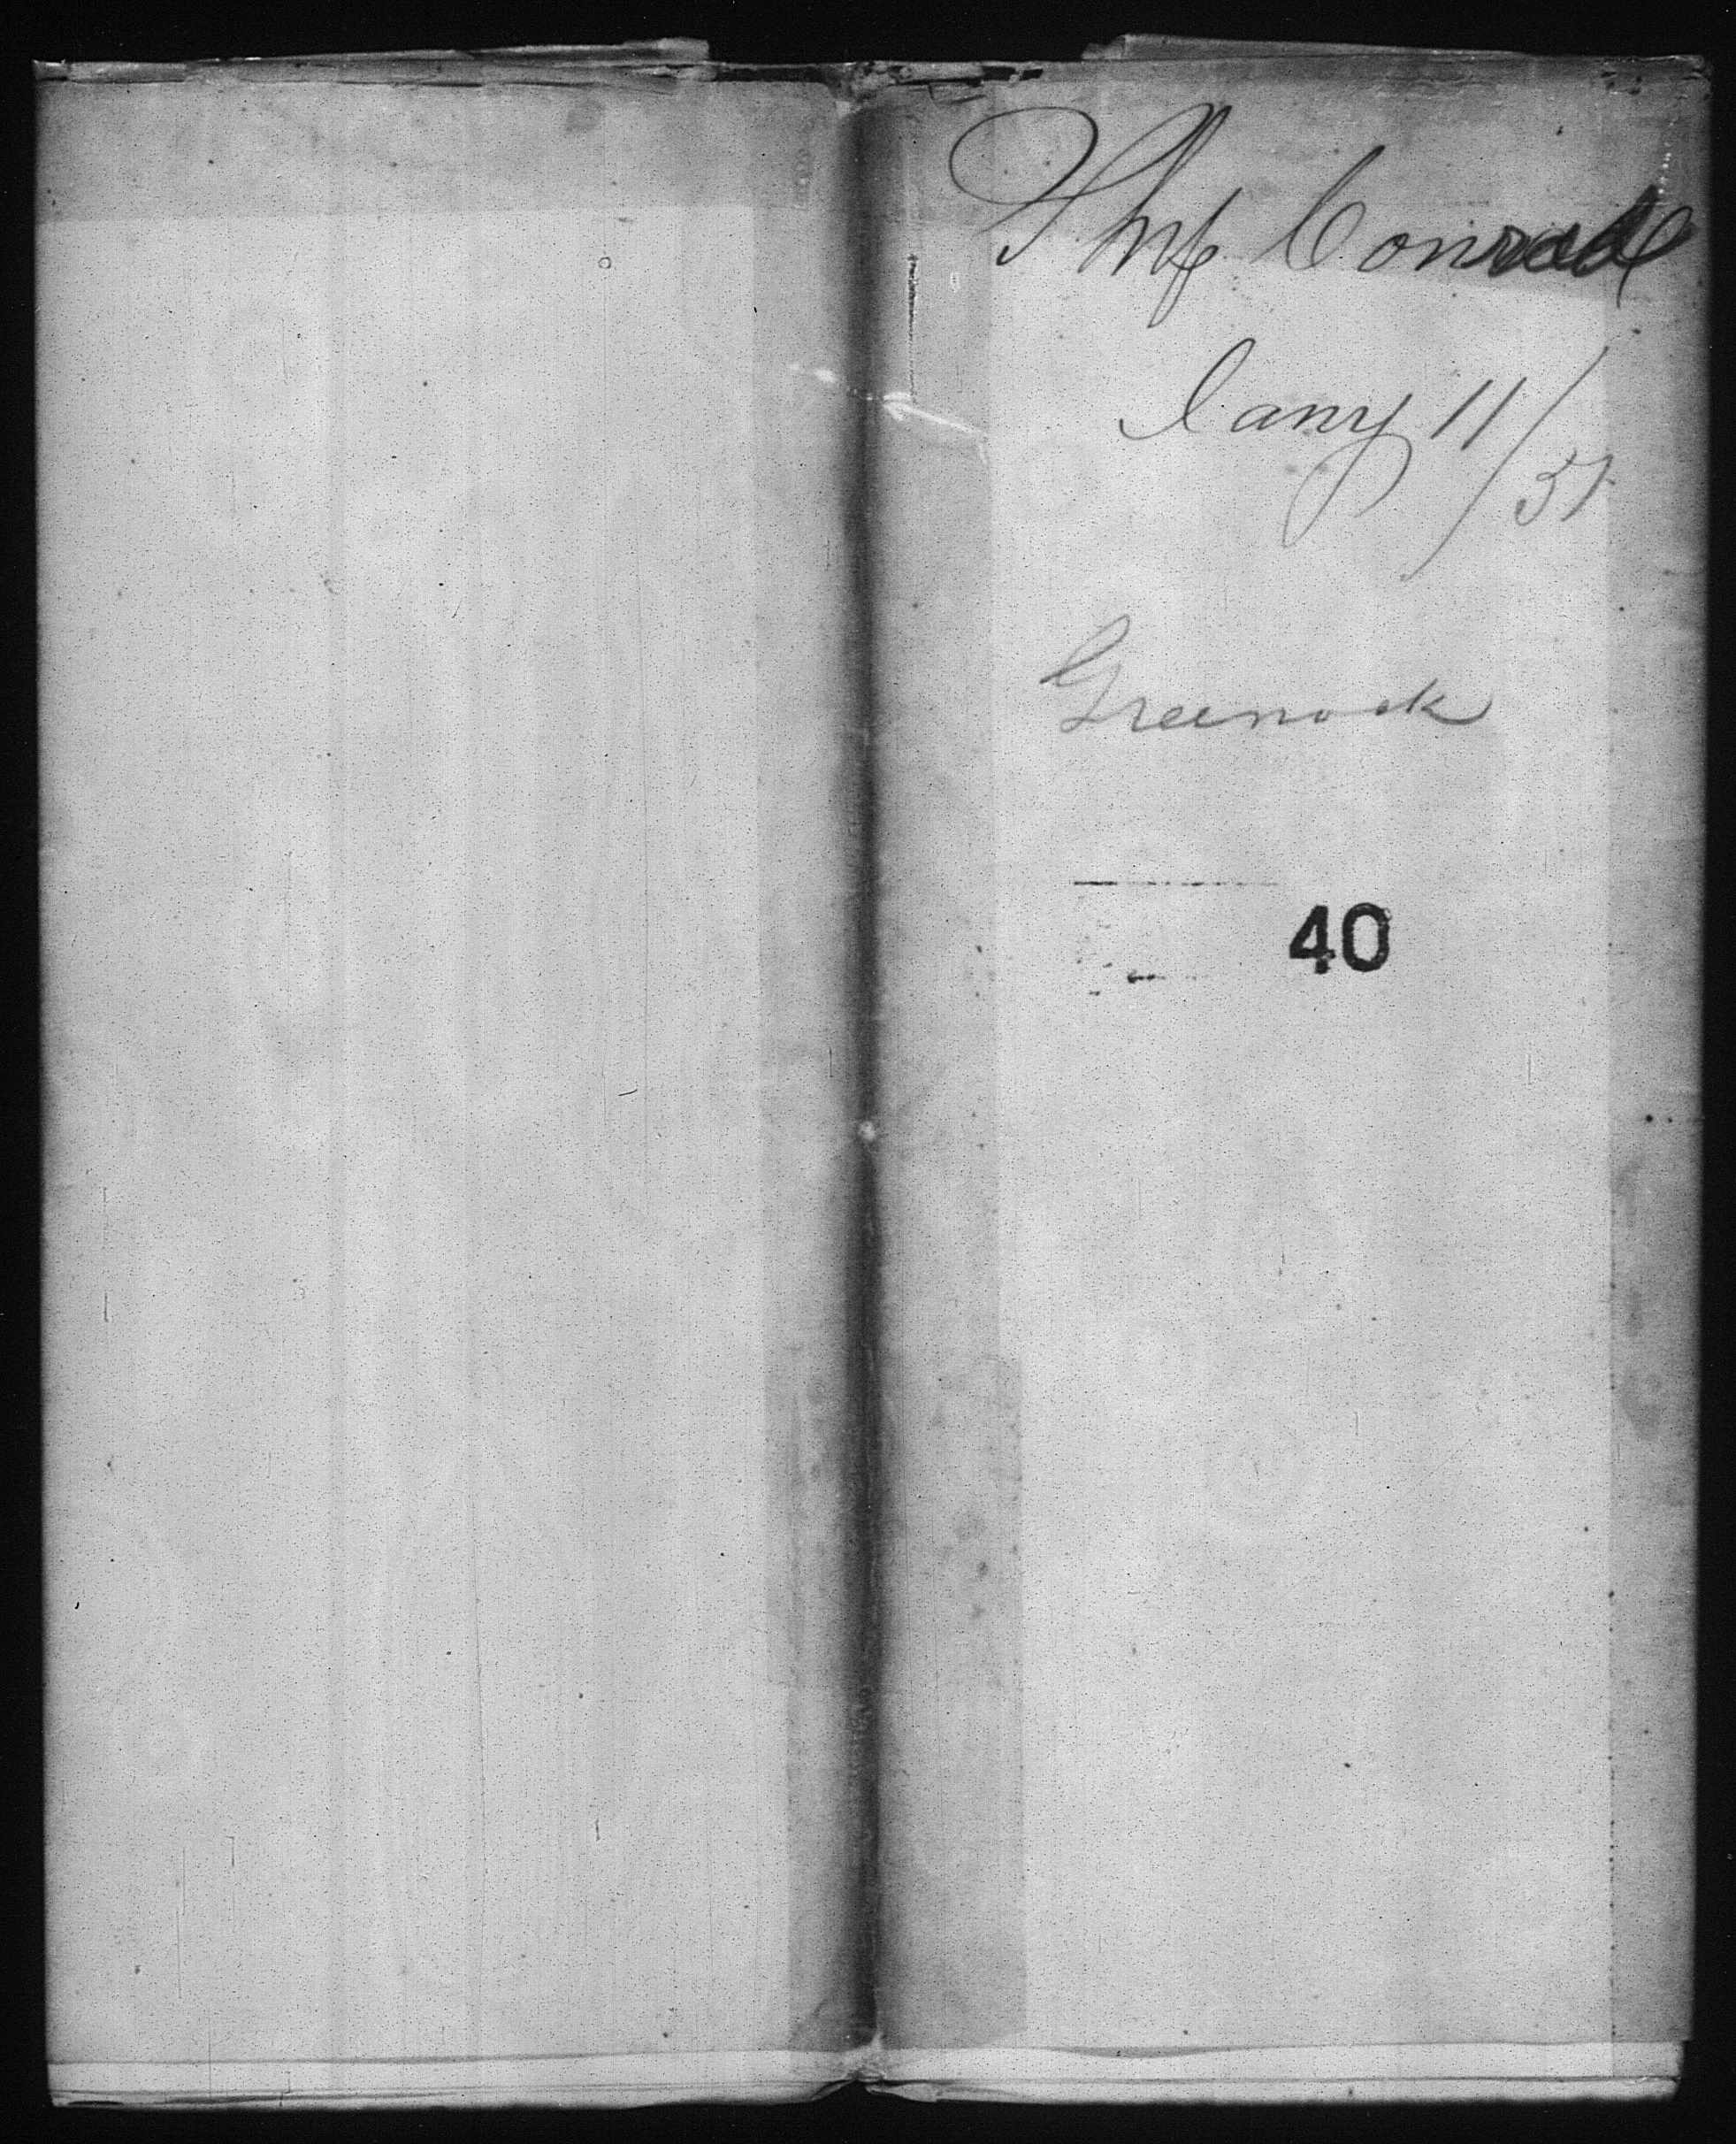 Ship Conrad
Jany 11/51
Greenock
40